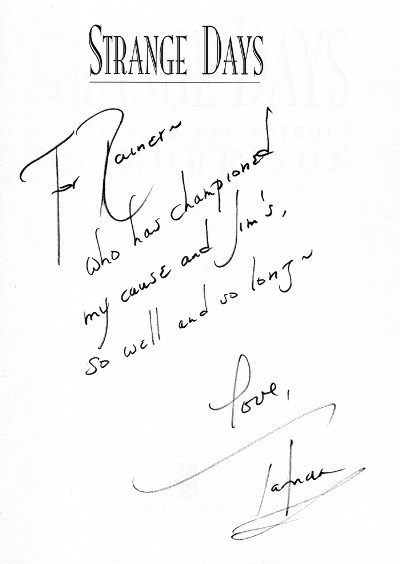 STRANGE DAYS
For Rainer~
who has championed
my cause and Jim's,
so well and so long~
Love,